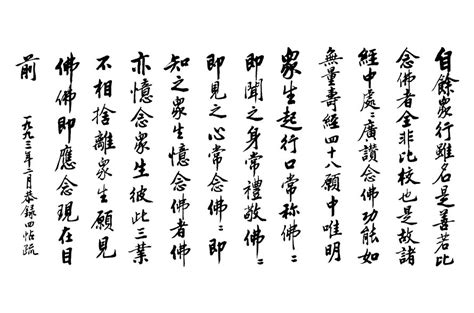 自餘眾行雖名是善若比
念佛者全非比校也是故諸
經中處〻廣讚念佛功能如
無量壽經四十八願中唯明
眾生起行口常称佛〻
即聞之身常禮敬佛〻
即見之心常念佛〻即
知之眾生憶念佛者佛
亦憶念眾生彼此三業
不相捨離眾生願見
佛佛即應念現在目
前
一九九三年二月恭錄四帖疏